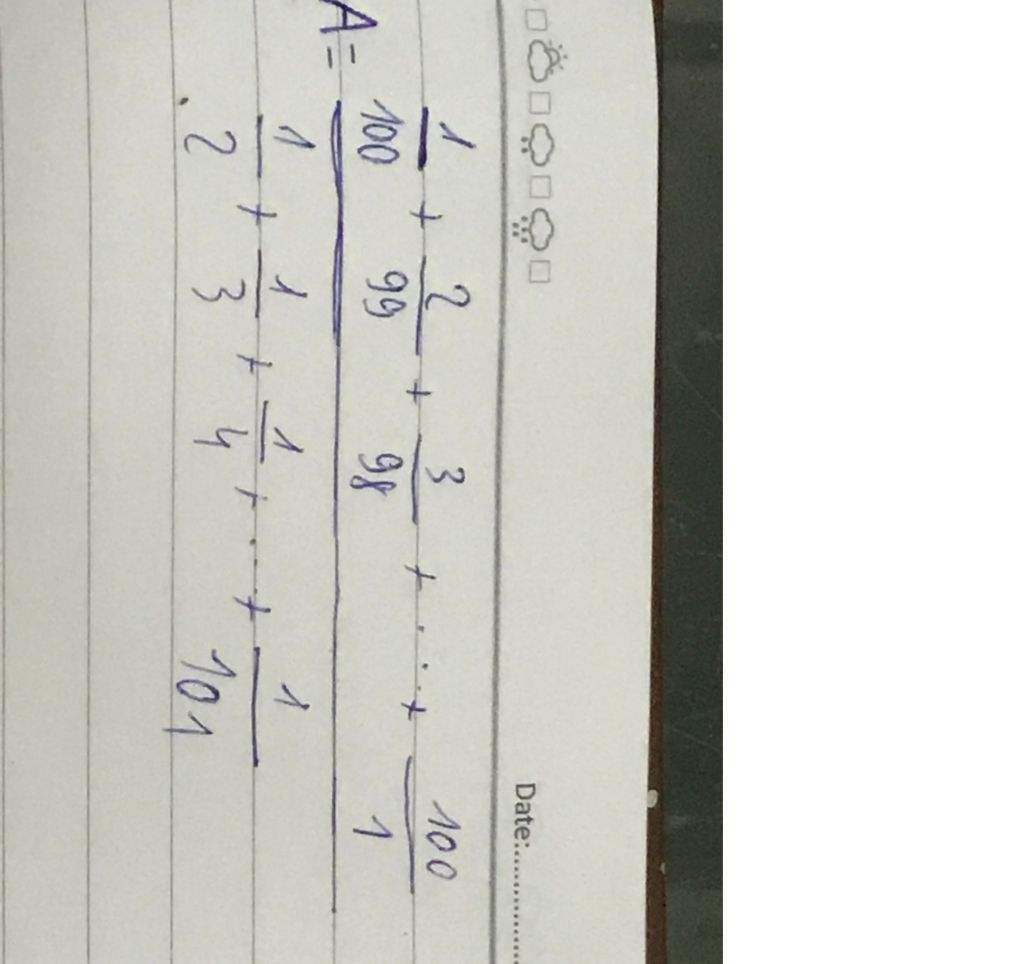 Date:....................
1/100 + 2/99 + 3/98 + ... + 100/1
A=
1/2 + 1/3 + 1/4 + ... + 1/101